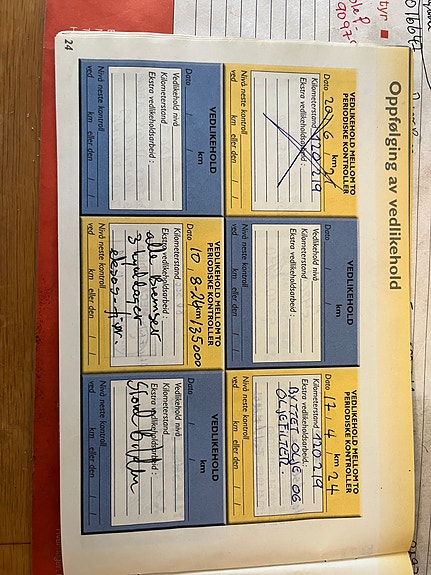 Oppfølging av vedlikehold
VEDLIKEHOLD MELLOM TO
PERIODISKE KONTROLLER
Dato 20 / 6 / km
Kilometerstand 120219
Ekstra vedlikeholdsarbeid :
Nivå neste kontroll
ved km eller den / /
VEDLIKEHOLD
Dato / / km
Vedlikehold nivå
Kilometerstand
Ekstra vedlikeholdsarbeid :
Nivå neste kontroll
ved km eller den / /
VEDLIKEHOLD MELLOM TO
PERIODISKE KONTROLLER
Dato 17 / 4 / km 24
Kilometerstand 120219
Ekstra vedlikeholdsarbeid :
BYTTET OLJE OG
OLJEFILTER
Nivå neste kontroll
ved km eller den / /
VEDLIKEHOLD
Dato / / km
Vedlikehold nivå
Kilometerstand
Ekstra vedlikeholdsarbeid :
Nivå neste kontroll
ved km eller den / /
VEDLIKEHOLD MELLOM TO
PERIODISKE KONTROLLER
Dato 10 / 8-26 km 135000
Kilometerstand
Ekstra vedlikeholdsarbeid :
alle bremser
3
Nivå neste kontroll
ved km eller den / /
VEDLIKEHOLD
Dato / / km
Vedlikehold nivå
Kilometerstand
Ekstra vedlikeholdsarbeid :
Nivå neste kontroll
ved km eller den / /
24